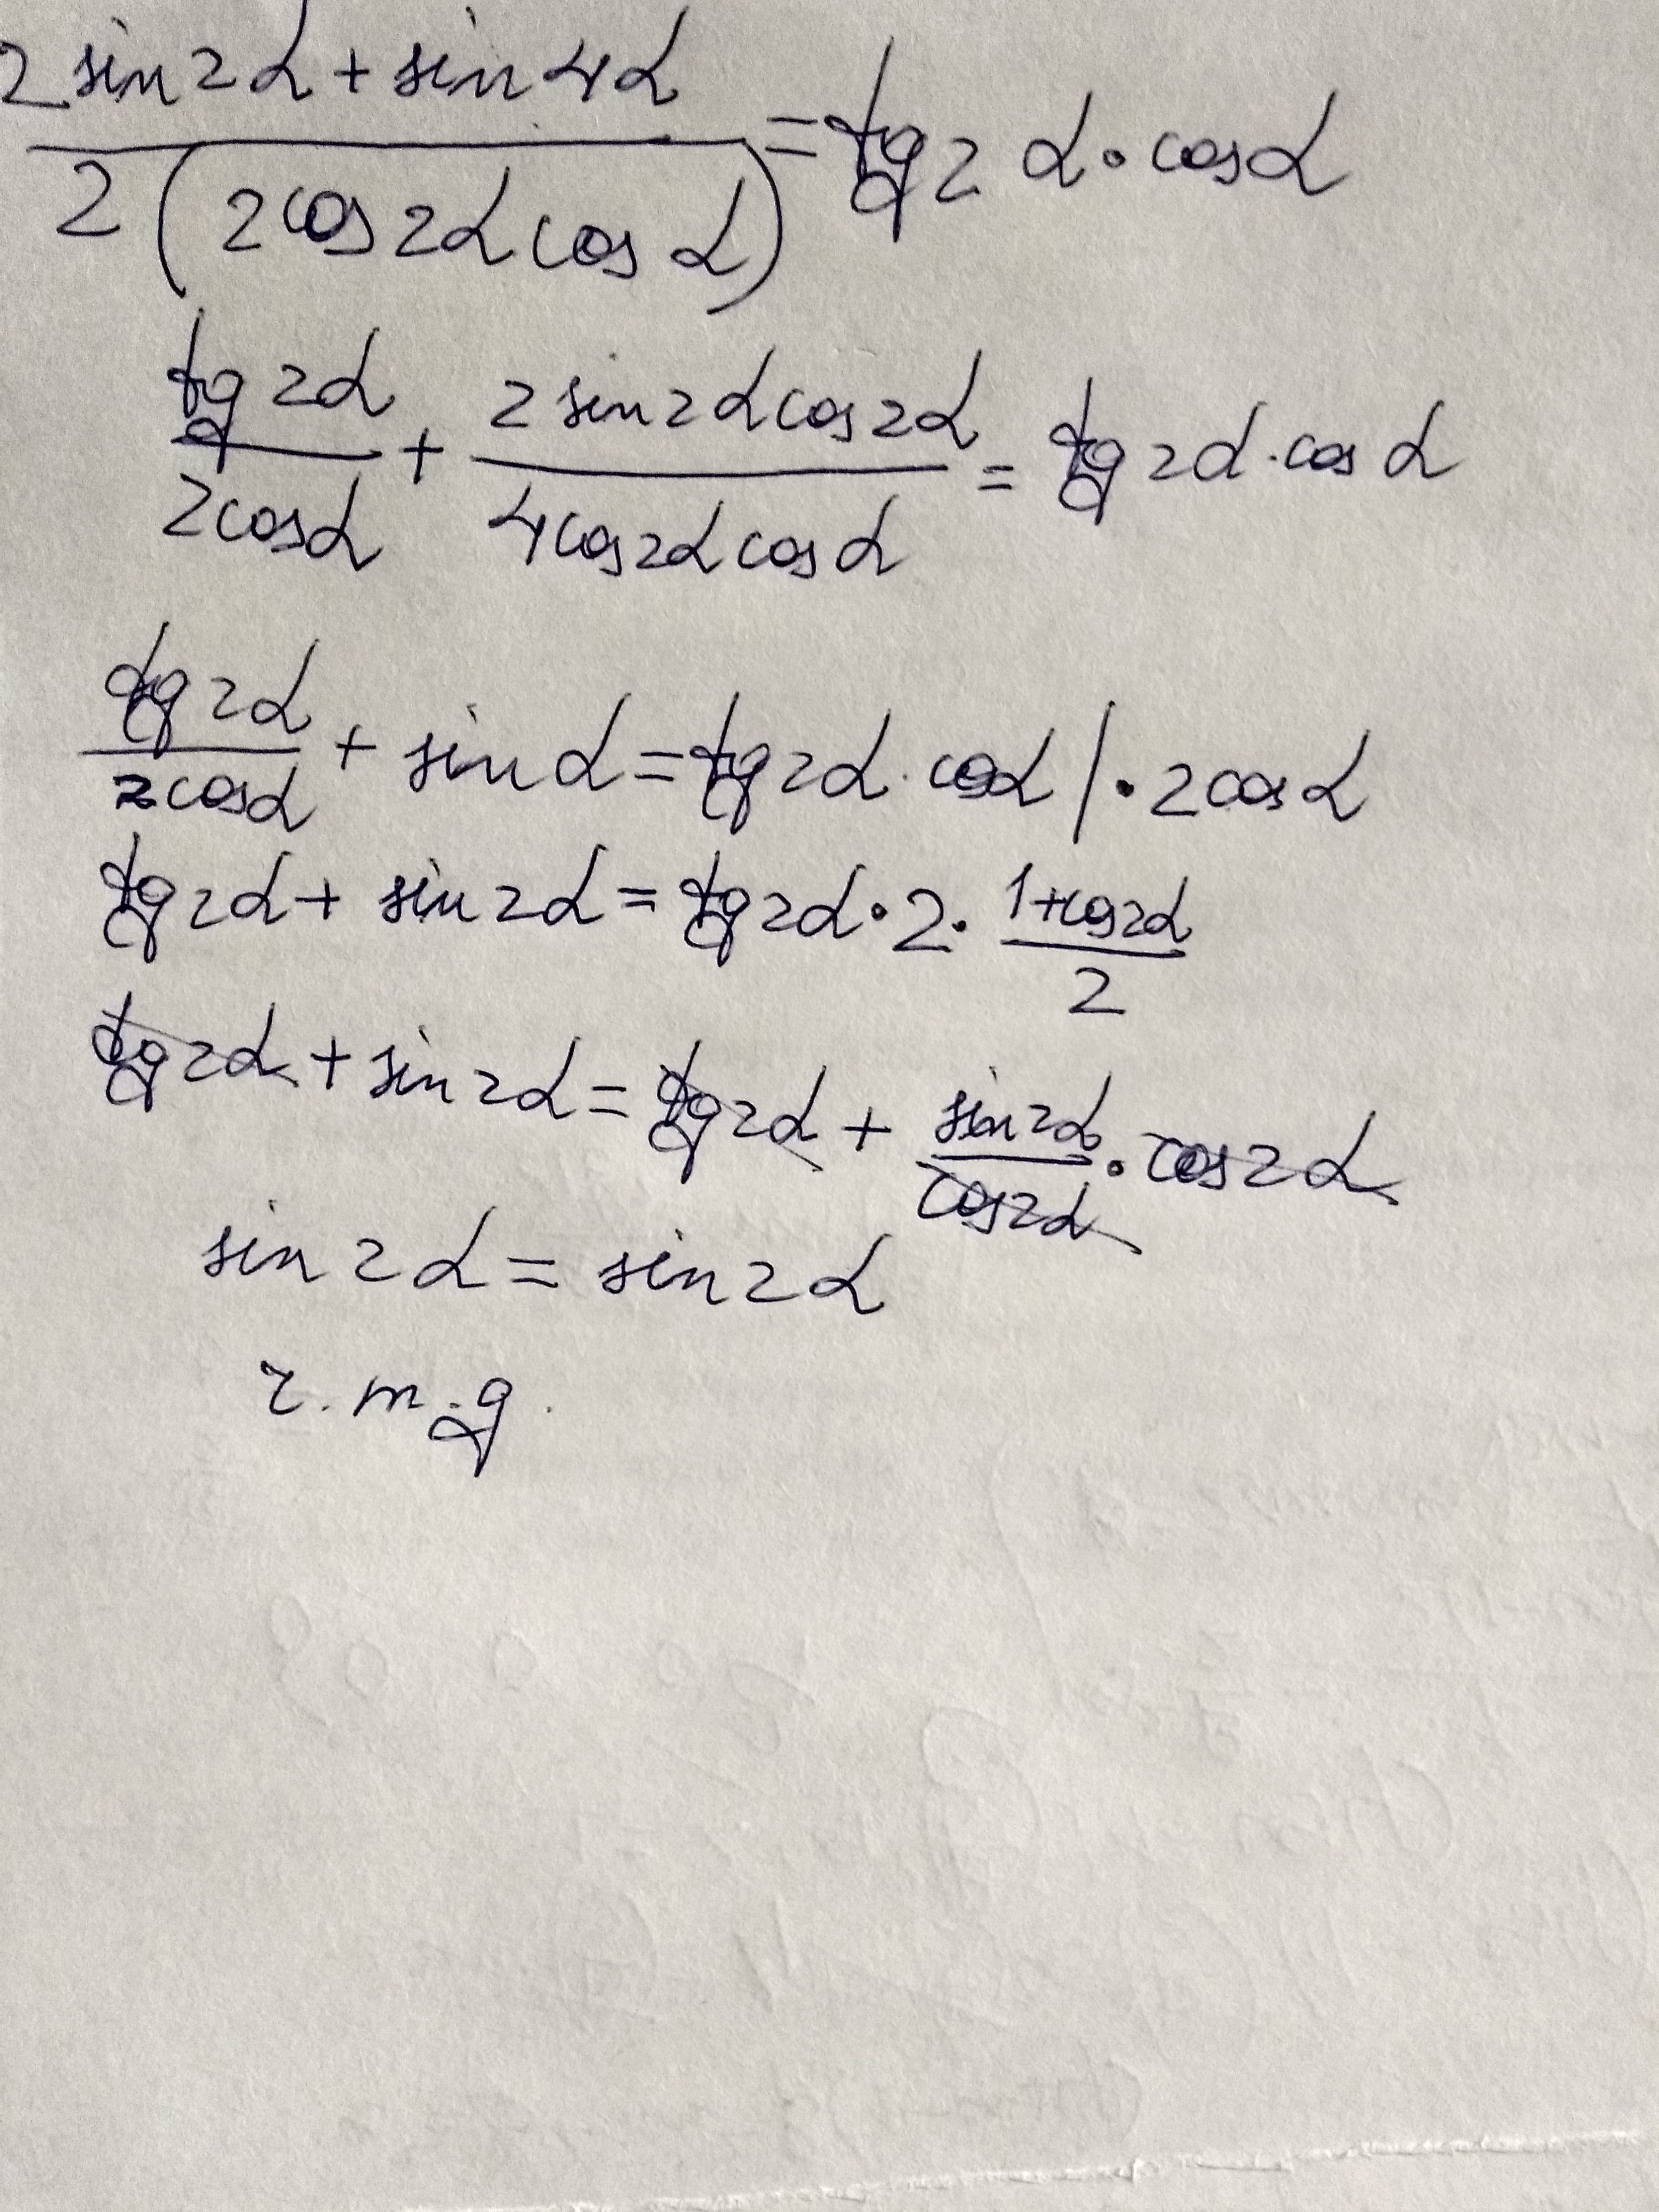 (2 sin 2α + sin 4α) / (2(2 cos 2α cos α)) = tg 2α · cos α
tg 2α / (2 cos α) + (2 sin 2α cos 2α) / (4 cos 2α cos α) = tg 2α · cos α
tg 2α / (2 cos α) + sin α = tg 2α · cos α | · 2 cos α
tg 2α + sin 2α = tg 2α · 2 · (1 + cos 2α) / 2
tg 2α + sin 2α = tg 2α + (sin 2α / cos 2α) · cos 2α
sin 2α = sin 2α
ч. т. д.